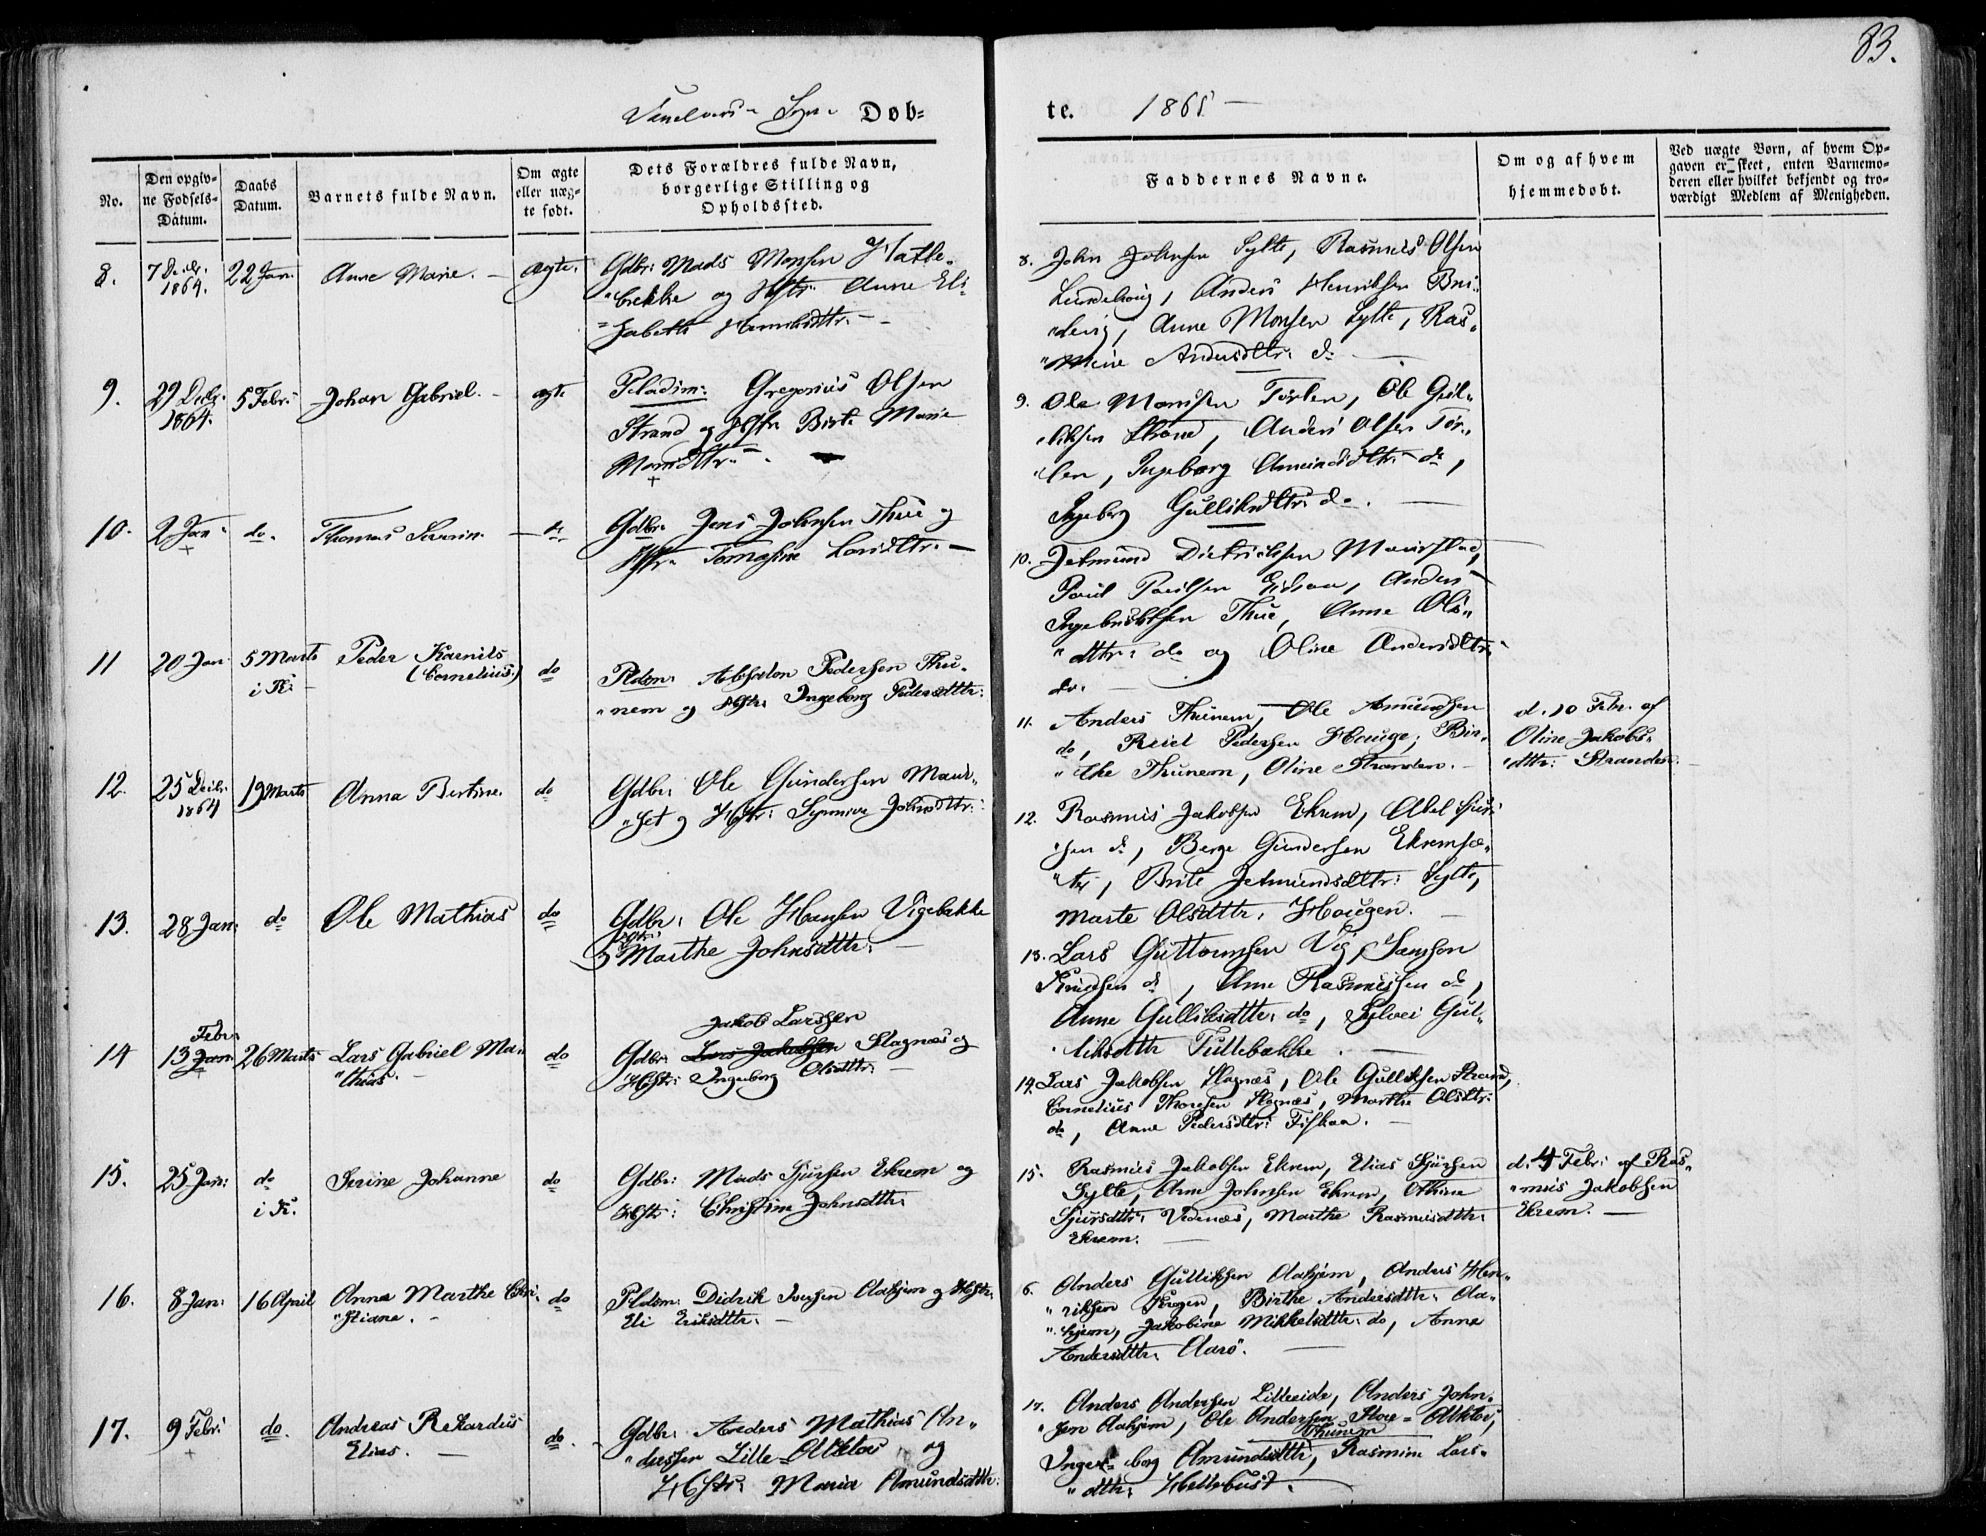 83.
Vanelvens Sogn Døb=
te. 1865
No.
Den opgiv-
ne Fødsels-
Datum.
Daabs
Datum.
Barnets fulde Navn.
Om ægte
eller uæg-
te født.
Dets Forældres fulde Navn,
borgerlige Stilling og
Opholdssted.
Faddernes Navne.
Om og af hvem
hjemmedøbt.
Ved uægte Børn, af hvem Op-
gaven er skeet, enten Barnemo-
deren eller hvilket bekjendt og tro-
værdigt Medlem af Menigheden.
8.
7 Decbr.
1864.
22 Jan:
Anne Marie.
ægte.
Gdbr: Mads Monsen Hatle-
"brekke og Hstr: Anne Eli-
=sabeth Henriksdttr:
8. John Johnsen Sylte, Rasmus Olsen
Lundehoug, Anders Henriksen Bru-
Anne Monsen Sylte, Ras-
"mine Andersdttr: do
9.
29 Decbr.
1864.
5 Febr:
Johan Gabriel.
ægte
Pladsm: Gregorius Olsen
Strand og Hstr: Birte Marie
Monsdttr:
9. Ole Monsen Torlen, Ole Gul-
"liksen Strand, Anders Olsen Tor-
"len, Ingeborg Amundsdttr: do,
Ingeborg Gulliksdttr: do.
10.
2 Jan:
do.
Thomas Severin.
do
Gdbr: Jens Johnsen Thue og
Hstr: Tomasine Larsdttr:
10. Jetmund Dietrichsen Maurstad,
Poul Poulsen Eidsaa, Anders
Ingebrigtsen Thue, Anne Ols-
"dttr: do og Oline Andersdttr:
do.
11
20 Jan:
5 Marts
i K:
Peder Karnils
(Cornelius.)
do
Pldsm: Absalon Pedersen Thu-
"nem og Hstr: Ingeborg Pedersdttr:
11. Anders Thunem, Ole Amundsen
do, Peder Pedersen Houge, Bir-
"the Thunem, Oline Stranden.
d. 10 Febr. af
Oline Jakobs-
"dttr: Stranden.
12.
25 Decbr.
1864
19 Marts
Anna Bertine.
do
Gdbr: Ole Gundersen Maur-
"set og Hstr: Synnive Johnsdttr:
12. Rasmus Jakobsen Ekrem, Abel Sjur-
"sen do, Berge Gundersen Ekremsæ-
"ter, Brite Jetmundsdttr: Sylte,
Marte Olsdttr: Hougen.
13.
28 Jan:
do
Ole Mathias
do
Gdbr: Ole Hansen Vigebakke
Hstr: Marthe Johnsdttr:
13. Lars Guttormsen Vig, Samson
Knudsen do, Arne Rasmussen do,
Anne Gulliksdttr: do, Sylvei Gul-
"liksdttr Tullebakke.
14
Febr:
13 Jan:
26 Marts
Lars Gabriel Ma-
"thias.
do
Jakob Larssen
Gdbr: Lars Jakobsen Slagnæs og
Hstr: Ingeborg Olsdttr:
14. Lars Jakobsen Slagnæs, Ole Gulliksen Strand,
Cornelius Thoresen Slagnæs, Marthe Olsdttr:
do, Anne Pedersdttr: Fiskaa.
15.
25 Jan:
do
i K.
Serine Johanne
do
Gdbr: Mads Sjursen Ekrem og
Hstr: Christine Johnsdttr:
15. Rasmus Jakobsen Ekrem, Elias Sjursen
Sylte, Arne Johnsen Ekrem, Othine
Sjursdttr: Vedenæs, Marthe Rasmusdttr:
Ekrem.
d. 4 Febr: af Ras-
"mus Jakobsen
Ekrem.
16.
8 Jan:
16 April
Anna Marthe Chri-
"stiane.
do
Pldsm: Didrik Iversen Aahjem og Hstr:
Eli Eriksdttr:
6. Anders Gulliksen Aahjem, Anders Hen-
"riksen Krogen, Birthe Andersdttr: Aa-
"hjem, Jakobine Mikkelsdttr: do, Anne
Andersdttr: Aarø.
17.
9 Febr:
do.
Andreas Rekardus
Elias.
do.
Gdbr: Anders Mathias An-
"dersen Lille-Aktlov og
Hstr: Maria Amundsdttr:
17. Anders Andersen Lilleeide, Anders John-
"sen Aahjem, Ole Andersen Store=Aktlov,
Thunem
Ingeborg Amundsdttr:, Rasmine Lars-
"dttr: Hellebust.